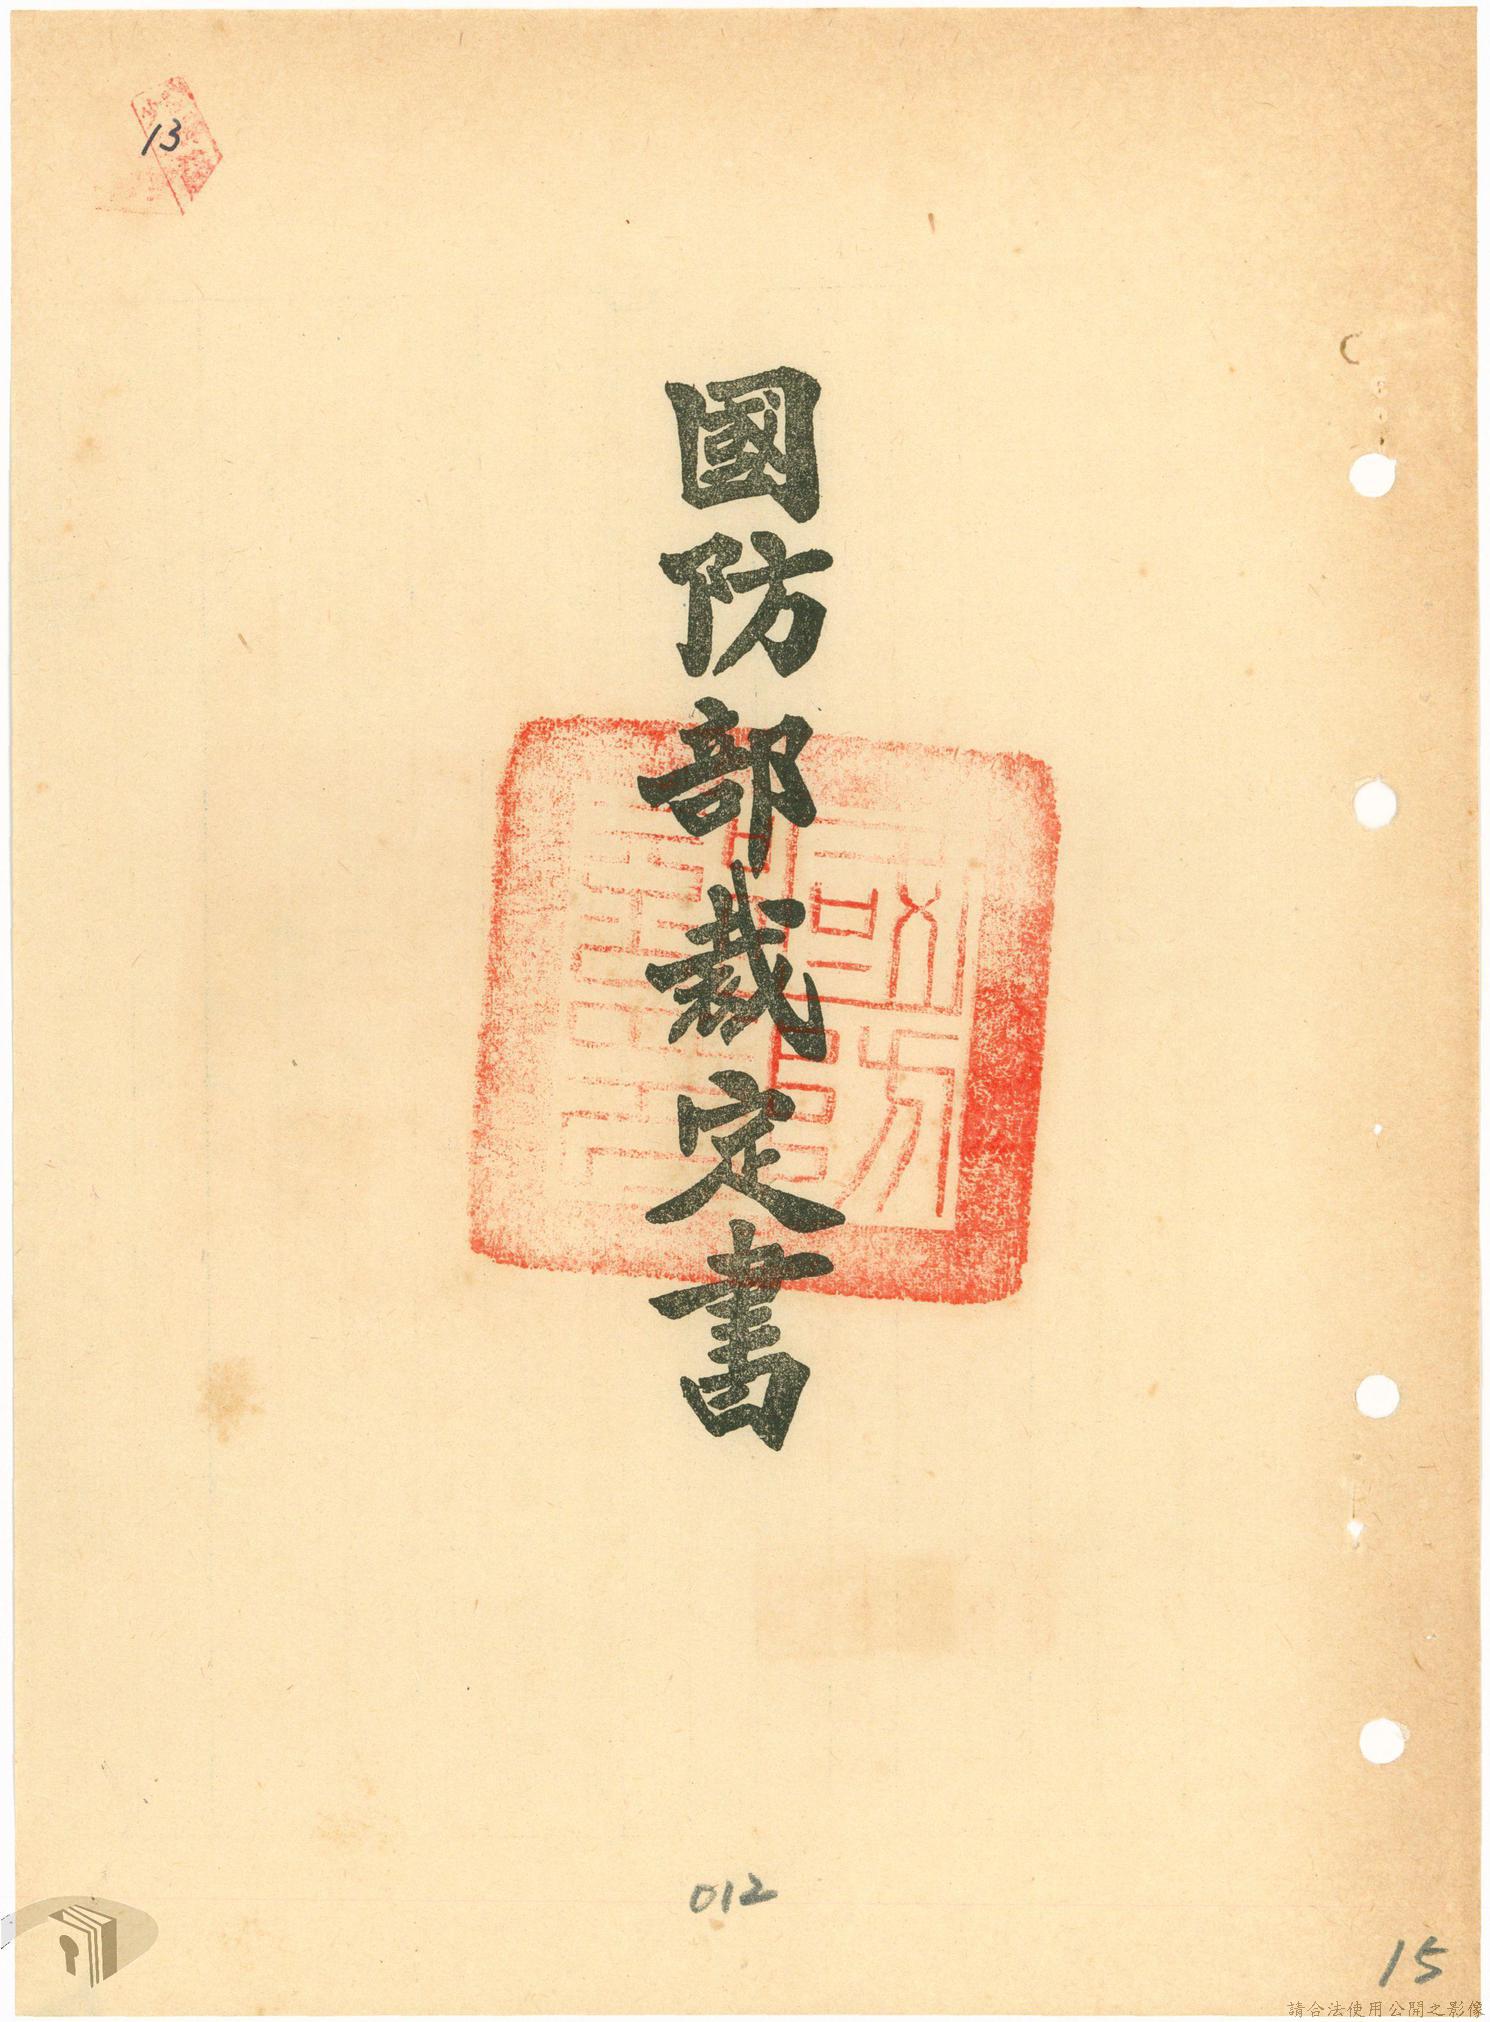 13
國防部裁定書
012
15
請合法使用公開之影像